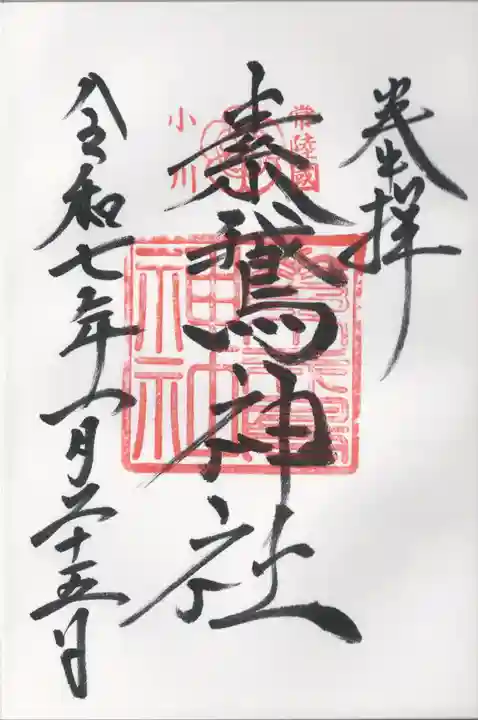 奉拝
常陸國
小川
素鵞神社
素鵞
神社
令和七年八月二十五日